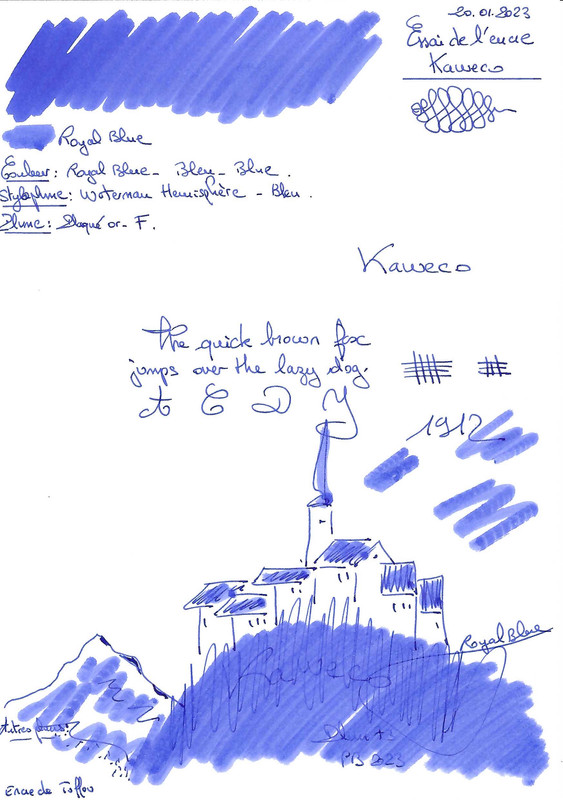 20.01.2023
Essai de l'encre
Kaweco
Royal Blue
Couleur: Royal Blue - Bleu - Blue.
Styloplume: Waterman Hemisphère - Bleu.
Plume: Plaqué or - F.
Kaweco
The quick brown fox
jumps over the lazy dog.
A E D Y
1912
Royal Blue
Kaweco
PB 2023
Encre de